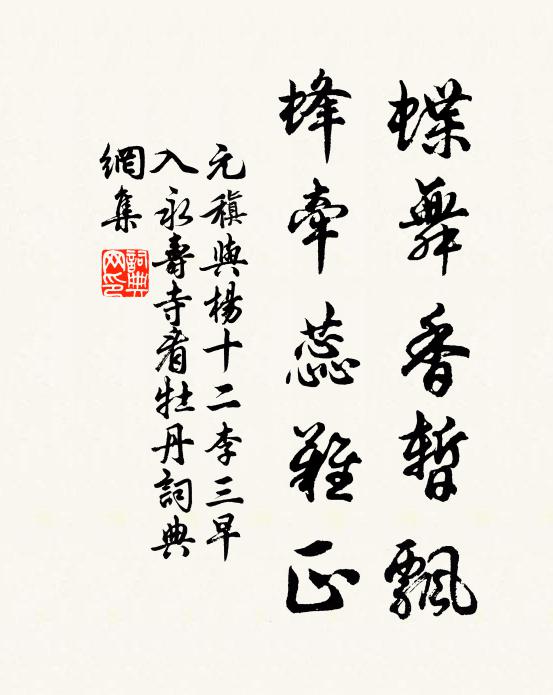 蝶舞香暫飄
蜂牽蕊難正
元稹與楊十二李三早
入永壽寺看牡丹詞典
網集
詞典
网印